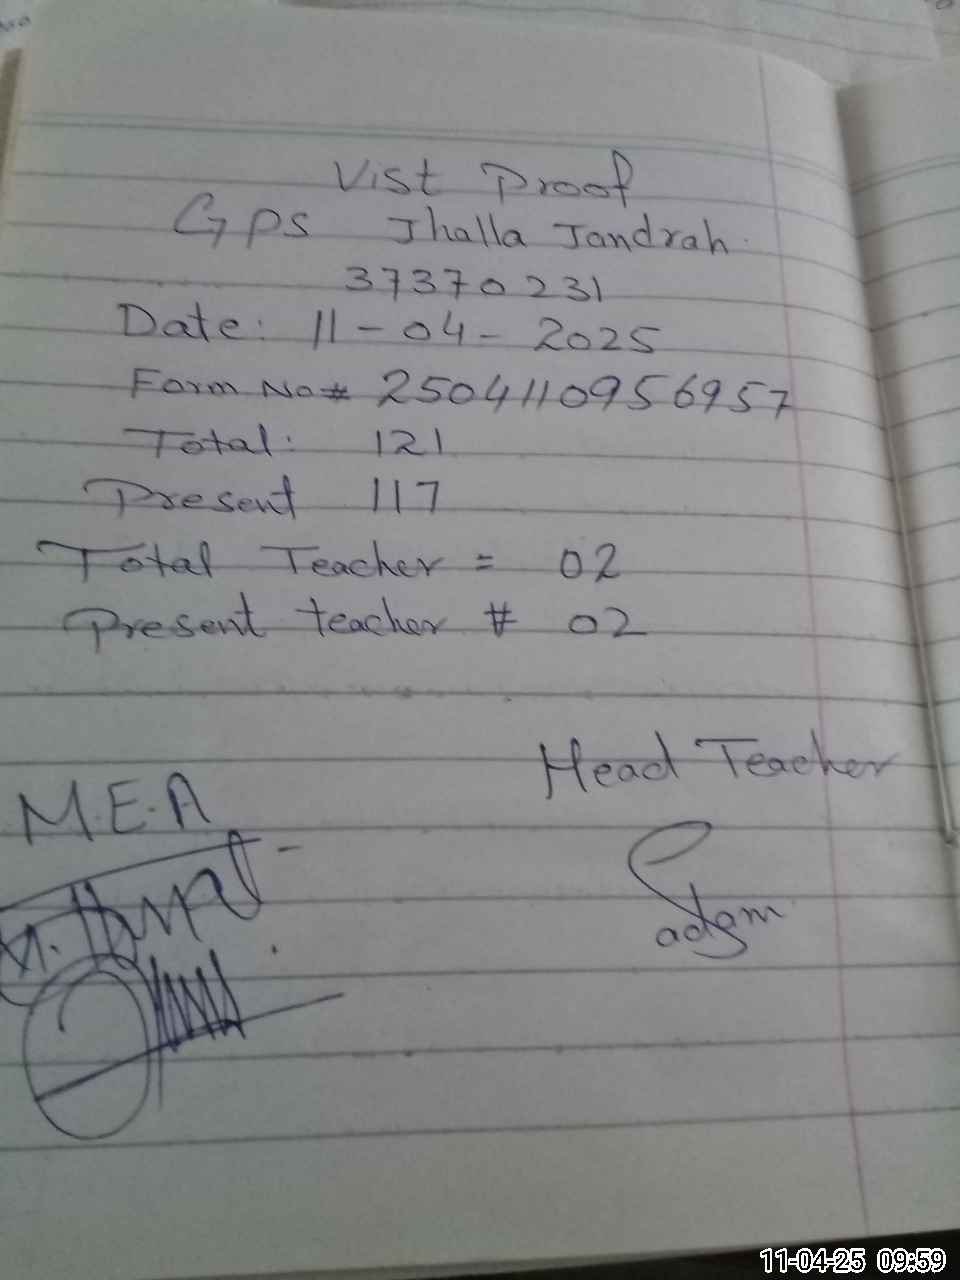 Vist Proof
GPS Jhalla Jandrah
37370231
Date: 11-04-2025
Form No# 2504110956957
Total: 121
Present 117
Total Teacher = 02
Present teacher # 02
Head Teacher
M.E.A
11-04-25 09:59